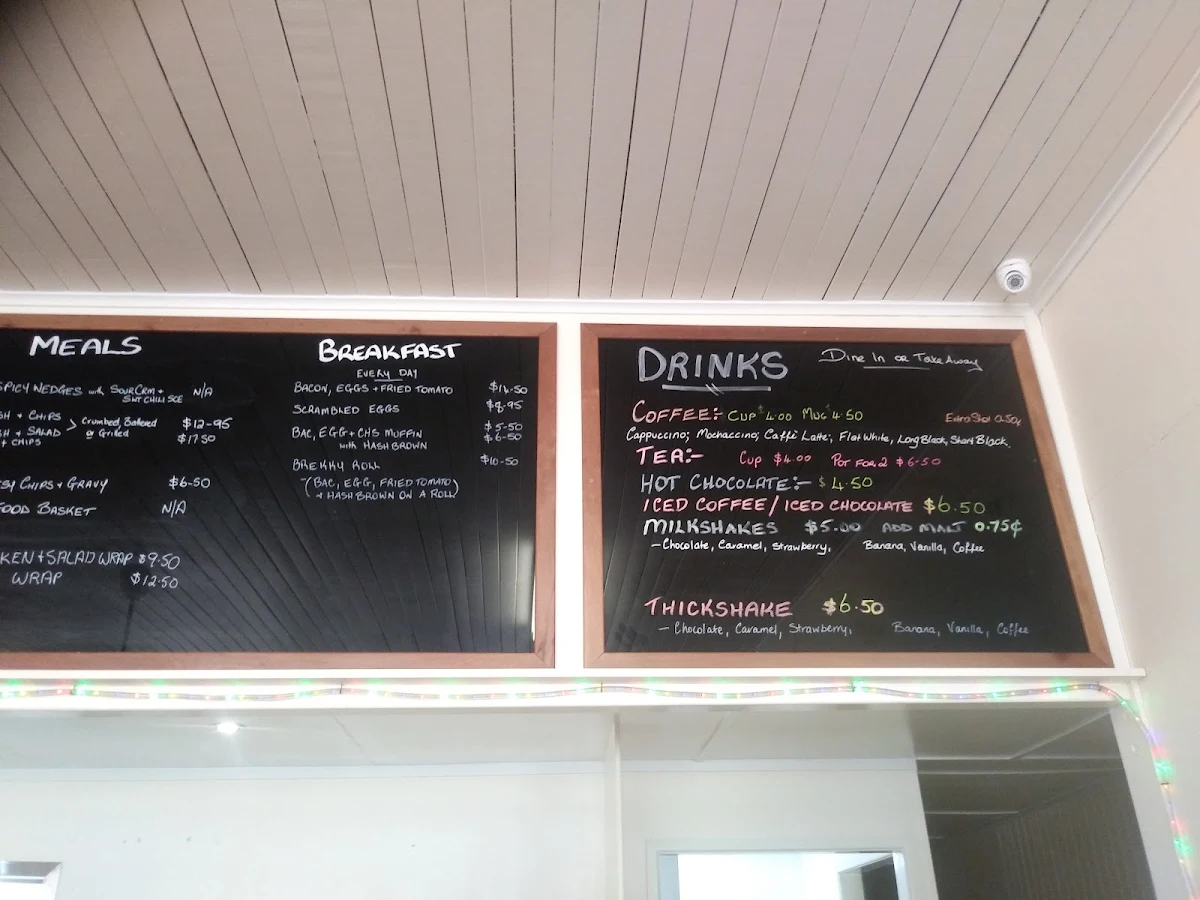 MEALS
SPICY WEDGES with SOUR CRM + N/A
SWT CHILI SCE
SH + CHIPS > Crumbed, Battered $12-95
SH + SALAD or Grilled $17.50
+ CHIPS
SY CHIPS + GRAVY $6-50
FOOD BASKET N/A
KEN + SALAD WRAP $9.50
WRAP $12.50
BREAKFAST
EVERY DAY
BACON, EGGS + FRIED TOMATO
SCRAMBLED EGGS $8-95
BAC, EGG + CHS MUFFIN $5-50
with HASH BROWN $6-50
BREKKY ROLL $10-50
(BAC, EGG, FRIED TOMATO)
+ HASH BROWN ON A ROLL)
DRINKS
Dine In or Take Away
COFFEE:- CUP $4.00 MUG $4.50 Extra Shot 0.50¢
Cappuccino; Mochaccino; Caffé Latte; Flat White, Long Black, Short Black.
TEA:- Cup $4.00 POT FOR 2 $6-50
HOT CHOCOLATE:- $4.50
ICED COFFEE / ICED CHOCOLATE $6.50
MILKSHAKES $5.00 ADD MALT 0.75¢
- Chocolate, Caramel, Strawberry, Banana, Vanilla, Coffee
THICKSHAKE $6.50
- Chocolate, Caramel, Strawberry, Banana, Vanilla, Coffee